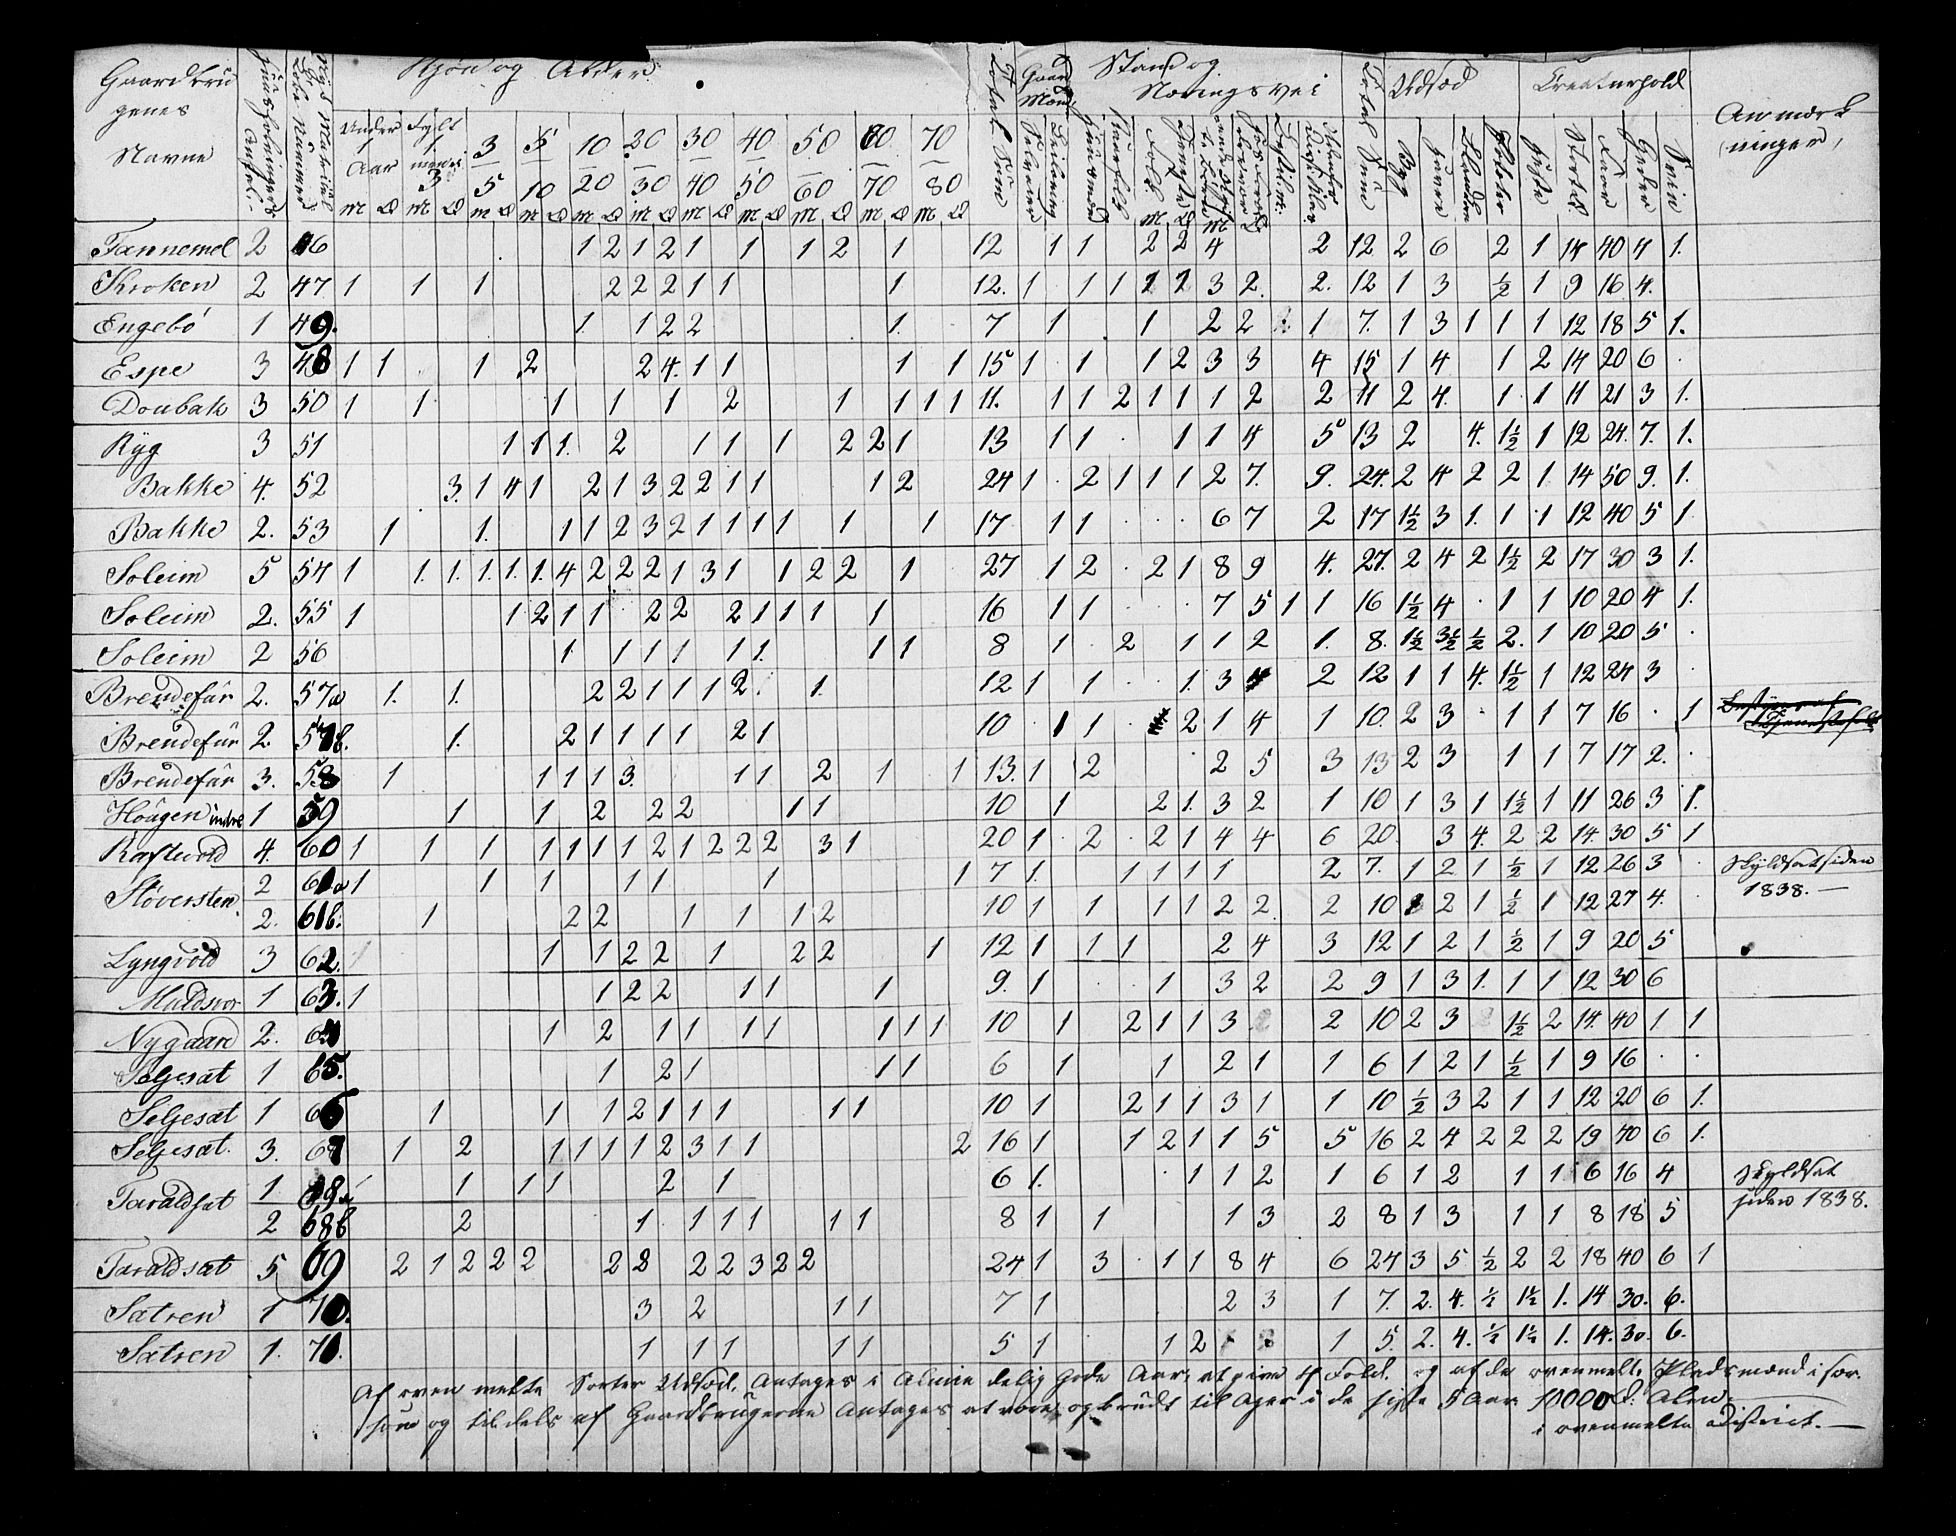 Gaardbru Huusholdningers Antal. Nye Matricul Løbe Nummer Kjön og Alder. Total Sum Gaard Mænd Stand og Næringsvei Total Sum Udsæd Creaturhold Anmærk
genes ninger,
Navne
Under 1 Aar Fylt 3 3/5 5/10 10/20 20/30 30/40 40/50 50/60 60/70 70/80 Selveier Leilending Huusmænd Folk Byg Havre Heste Stort Faar Geder Svin
M Q M Q M Q M Q M Q M Q M Q M Q M Q M Q M Q
Tannemel 2 46 1 2 1 2 1 1 1 2 1 12 1 1 2 2 4 2 12 2 6 2 1 14 40 4 1.
Kroken 2 47 1 1 1 2 2 2 1 1 1 12. 1 1 1 1 2 3 2. 2. 12 1 3 ½ 1 9 16 4.
Engebö 1 49. 1. 1 2 2 1. 7 1 1 2 2 1 7. 1 3 1 1 1 12 18 5 1.
Espe 3 48 1 1 1 2 2 4. 1 1 1 1 15 1 1 1 2 3 3 4 15 1 4 1 2 14 20 6
Doubak 3 50 1 1 1 1 1 2 1 1 1 1 11. 1 1 2 1 1 1 2 2 11 2 4. 1 1 11 21 3 1.
Ryg 3 51 1 1 1. 2 1 1 1 2 2 1 13 1 1 1 1 4 5 13 2 4. 1½ 1 12 24. 7. 1.
Bakke 4. 52 3. 1 4 1 2 1 3 2 2 1 1 1 2 24 1 2 1 1 1 2 7. 9. 24. 2 4 2 2 1. 14 50 9. 1.
Bakke 2. 53 1 1. 1 1 2 3 2 1 1 1 1 1 1 17 1 1 6 7 2 17 1½ 3 1. 1 1 12 40 5 1
Soleim 5 54 1 1. 1. 1. 1. 1. 4 2 2 2 1 3 1 1 2 2 1 27 1 2 2 1 8 9 4. 27. 2 4 2 1½ 2 17 30 3 1.
Soleim 2. 55 1 1 2 1 1 2 2 2 1 1 1 1 16 1 1 7 5 1 1 16 1½ 4 1 1 10 20 4 1.
Soleim 2 56 1 1 1 1 1 1. 1 1 8 1 2 1 1 2 1. 8. 1½ 3½ ½ 2. 1 10 20 5
Breudefur 2. 57a 1. 1. 2 2 1 1 1 2. 1. 12 1 1 1. 3 4 2 12 1 1 4. 1½ 1 12 24 3
Breudefur 2. 57b. 1. 2 1 1 1 1 2 1 10 1 1 2 1 4 1 10. 2 3 1 1 7 16 1
Breudefur 3. 58 1 1 1 1 3. 1 1 2 1 1 13. 1 2 2 5 3 13 2 3 1 1 7 17 2.
Hougen indre 1 59 1 1 2 2 2 1 1 10 1 2 1. 3 2 1 10 1 3 1 1½ 1 11 26 3 1.
Kaftevold 4. 60 1 1 1 1 1 1 1 2 1 2 2 2 3 1 20 1 2 2 1 4 4 6 20 3 4. 2 2 14. 30 5 1
Stöversten 2 61a 1 1 1 1 1 1 1 7 1. 1 1 1 1 2 7. 1 2 1 ½ 1 12 26 3 Skyldsat siden
1838. —
2. 61b. 1 2 2 1 1 1 2 10 1 1 1 1 2 2 2 10 1 2 1 ½ 1 12 27 4.
Lyngvold 3 62. 1 1 2 2 1 2 2 1 12 1 1 1 2 4 3 12 1 2 1 ½ 1 9 20 5
Muldsvor 1 63. 1 1 2 2 1 1 1 9. 1 1 3 2 2 9 1 3 1. 1 1 12 30 6
Nygaard 2. 64 1 2 1 1 1 1 1 1 1 10 1 2 1 1 3 2 10 2 3 1½ 2 14. 40 1 1
Seljesæt 1 65. 1 2 1 1 1 6 1 1 2 1 1 6 1 2 1 ½ 1 9 16
Seljesæt 1 66 1 1 1 2 1 1 1 1 1 10 1 2 1 1 3 1 1 10 ½ 3 2 1 1 12 20 6 1.
Seljesæt. 3. 67 1 2 1 1 1 1 2 3 1 1 2 16 1 1 2 1 1 5 5 16 2 4 2 2 2 19 40 6 1.
Taraldsæt 1 68a 1 1 1 2 1 6 1. 1 1 2 1 6 1 2 1 1 6 16 4 Skyldsat
siden 1838.
2 68b 2 1 1 1 1 1 1 8 1 1 1 3 2 8 1 3 1 1 8 18 5
Taraldsæt 5 69 2 1 2 2 2 2 2 2 2 3 2 2 24 1 3 1 1 8 4 6 24 3 5 ½ 2 2 18 40 6 1
Sætren 1 70. 3 2 1 1 7 1 2 3 1 7. 2. 4. ½ 1½ 1. 14 30. 6.
Sætren 1. 71. 1 1 1 1 1 5 1 1 2 1 5. 2. 4. ½ 1½ 1. 14. 30. 6.
Af oven melte Sorter Udsæd, Antages i Almindelig Gode Aar, at give 4 Fold. og af de ovenmelte Pladsmænd i sær
som og tildels af Gaardbrugerne Antages at være opbrudt til Ager i de sidste 5 Aar 10000 Q. Alen
i ovenmelte District. —